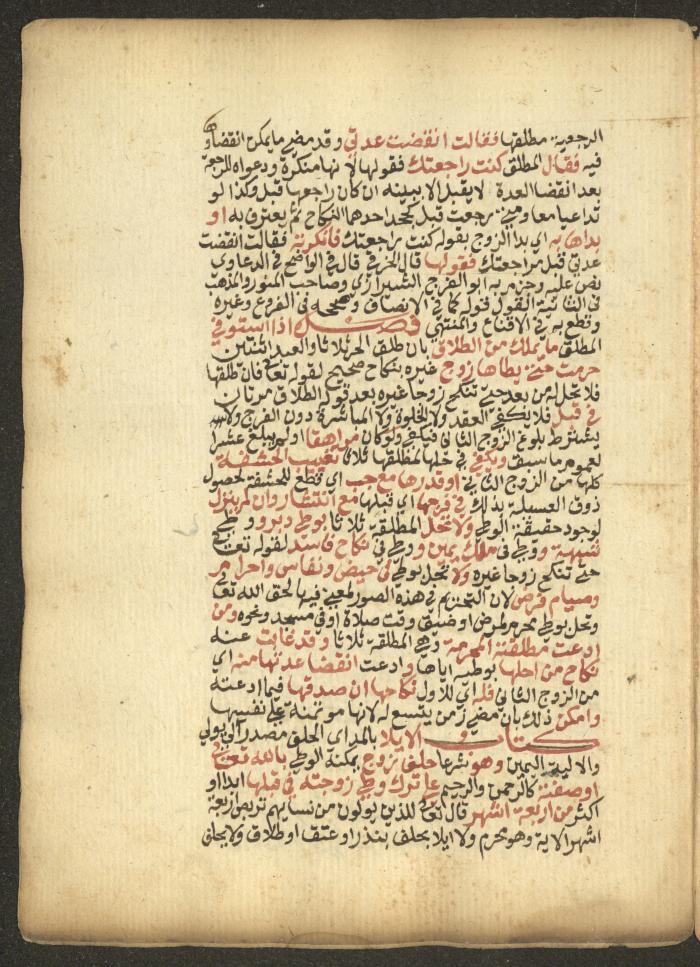 الرجعية مطلقها فقالت انقضت عدتي وقد مضى ما يمكن انقضاوها
فيه فقال المطلق كنت راجعتك فقولها لانها منكرة ودعواه للرجعة
بعد انقضا العدة لا يقبل الا ببينه انه كان راجعها قبل وكذا لو
تداعيا معا ومتى رجعت قبل كجحد احدهما النكاح ثم يعترف به او
بداها به اي بدا الزوج بقوله كنت راجعتك فانكرته فقالت انقضت
عدتي قبل مراجعتك فقولها قاله الخرقي قال في الواضح في الدعاوي
نص عليه وجزم به ابو الفرج الشيرازي وصاحب المنور والمذهب
في الثانية القول قوله كما في الانصاف وصححه في الفروع وغيره
وقطع به في الاقناع والمنتهى فصل اذا استوفى
المطلق ما يملك من الطلاق بان طلق الحر ثلاثا والعبد اثنتين
حرمت حتى يطاها زوج غيره بنكاح صحيح لقوله تعالى فان طلقها
فلا تحل له من بعد حتى تنكح زوجا غيره بعد قوله الطلاق مرتان
في قبل فلا يكفي العقد ولا الخلوة ولا المباشرة دون الفرج ولا
يشترط بلوغ الزوج الثاني فيكفي ولو كان مراهقا او لم يبلغ عشرا
لعموم ما سبق ويكفي في حلها لمطلقها ثلاثا تغييب الحشفة
كلها من الزوج الثاني او قدرها مع جب اي قطع للحشفة لحصول
ذوق العسيلة بذلك في فرجها اي قبلها مع انتشار وان لم ينزل
لوجود حقيقة الوطي ولا تحل المطلقة ثلاثا بوطي دبر و وطي
شبهة و وطي في ملك يمين و وطي في نكاح فاسد لقوله تعالى
حتى تنكح زوجا غيره ولا تحل بوطي في حيض ونفاس واحرام
وصيام فرض لان التحريم في هذه الصور لمعنى فيها لحق الله تعالى
وتحل بوطي محرم لمرض او ضيق وقت صلاة او في مسجد ونحوه ومن
ادعت مطلقته المحرمة وهي المطلقة ثلاثا وقد غابت عنه
نكاح من احلها بوطيه اياها وادعت انقضا عدتها منه اي
من الزوج الثاني فله اي للاول نكاحها ان صدقها فيما ادعته
وامكن ذلك بان مضى زمن يتسع له لانها موتمنة على نفسها
كتاب الايلا بالمد اي الحلف مصدر آلى يولي
والالية اليمين وهو شرعا حلف زوج يمكنه الوطي بالله تعالى
او صفته كالرحمن والرحيم على ترك وطي زوجته في قبلها ابدا او
اكثر من اربعة اشهر قال تعالى للذين يولون من نسايهم تربص اربعة
اشهر الاية وهو محرم ولا ايلا بحلف بنذر او عتق او طلاق ولا بحلف